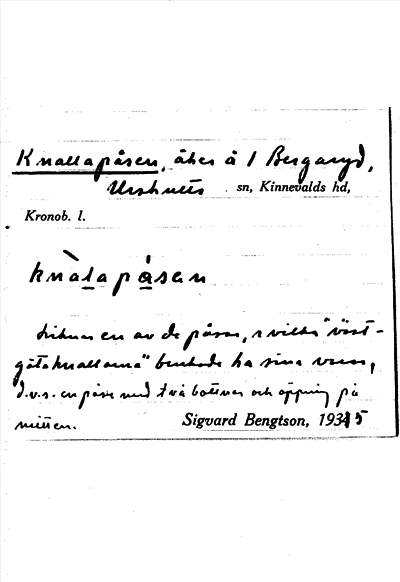 Knallapåsen, åker å 1 Bergaryd,
Urshults sn, Kinnevalds hd,
Kronob. l.
knàlapåsen
Liknar en av de påsar, i vilka "väst-
götaknallarna" brukade ha sina varor,
d.v.s. en påse med två bottnar och öppning på
mitten.
Sigvard Bengtson, 1935